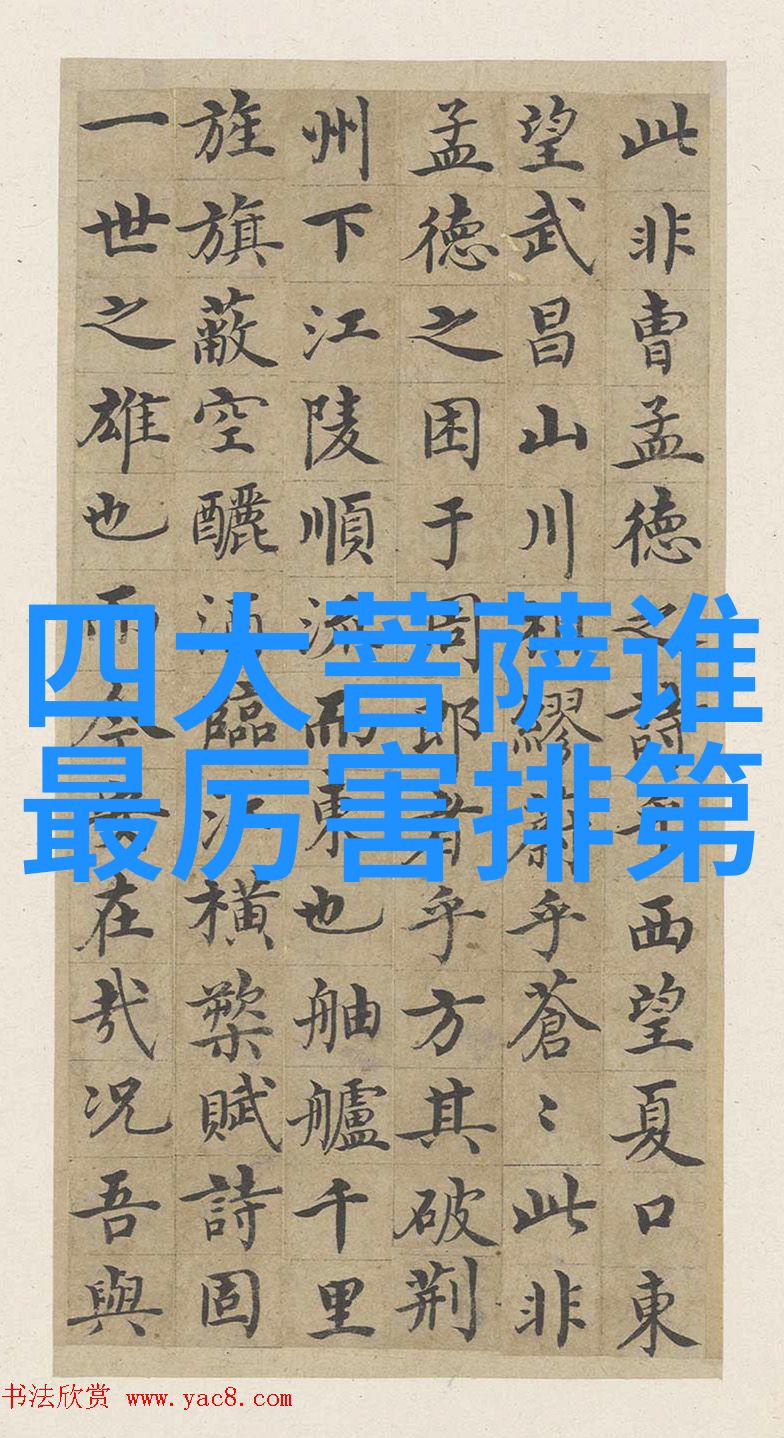 此非曹孟德之詩乎西望夏口東
望武昌山川相繆蔚乎蒼〻此非
孟德之困于周郎者乎方其破荆
州下江陵順流而東也舳艫千里
旌旗蔽空釃酒臨江橫槊賦詩固
一世之雄也而今安在哉况吾與
四大菩萨谁
最厉害排第
书法欣赏 www.yac8.com